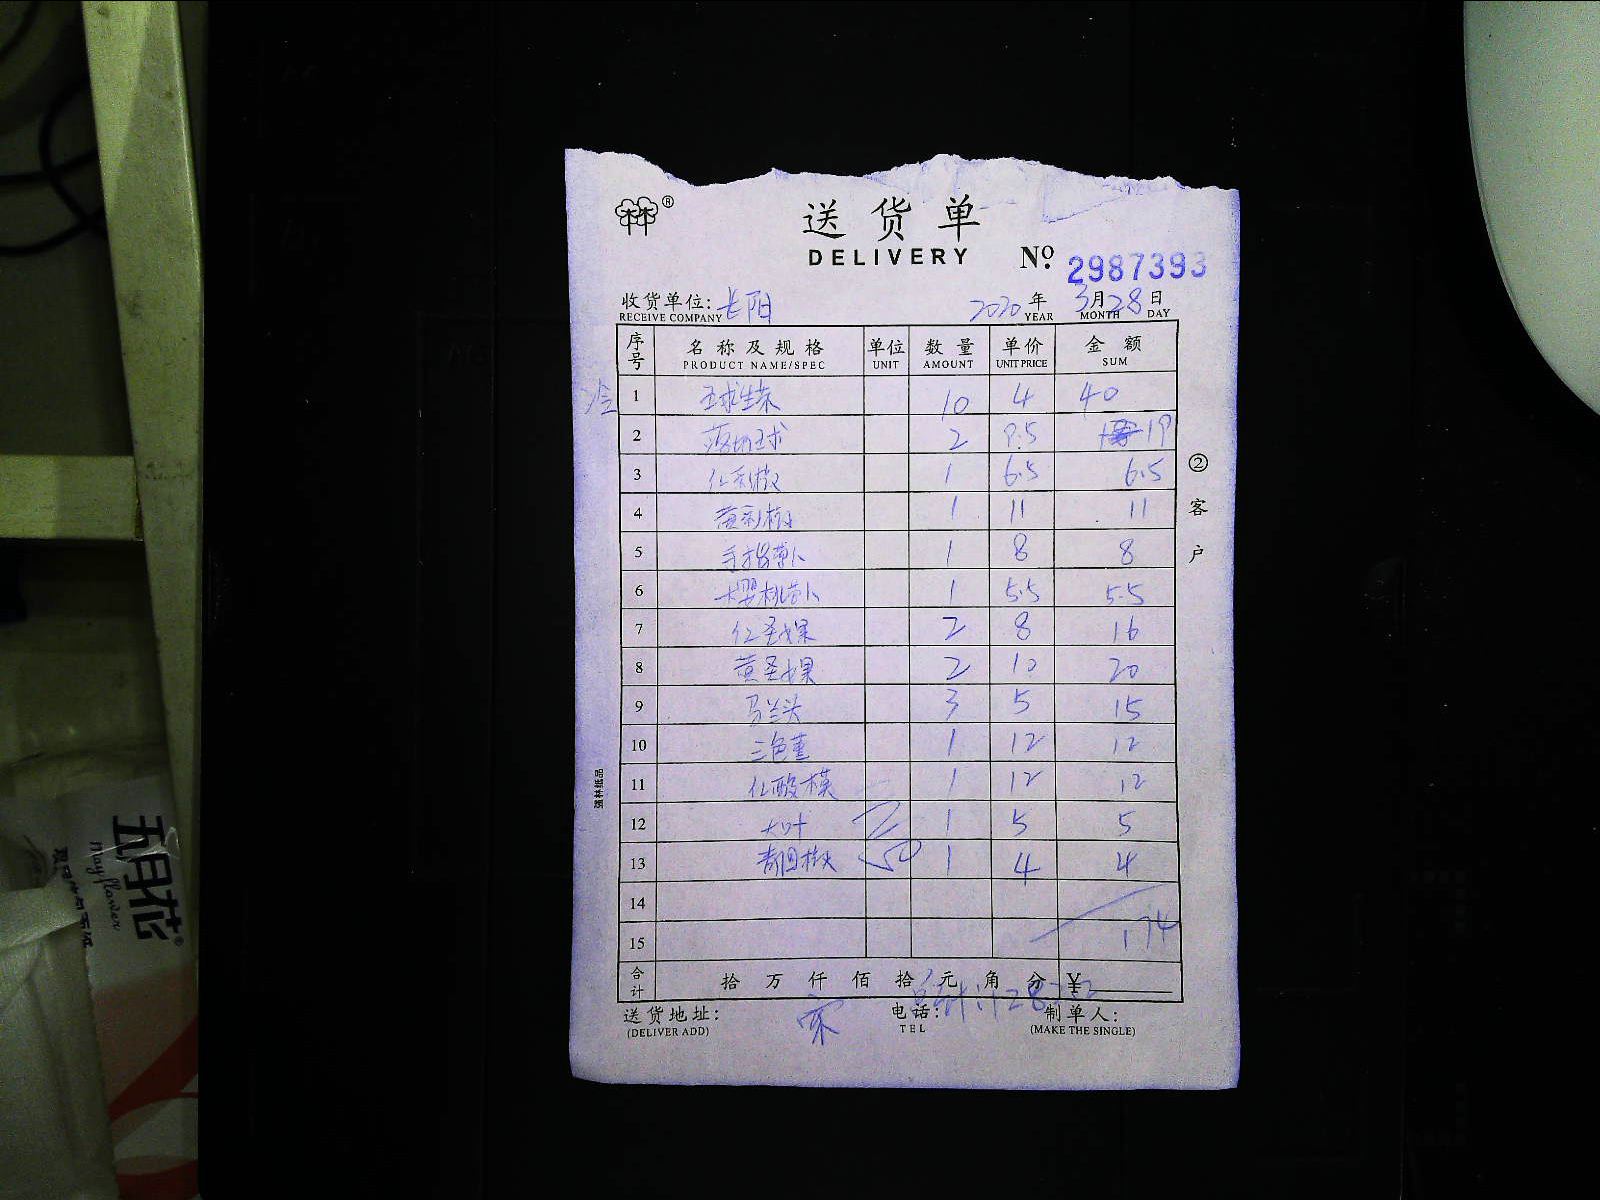 送货单
DELIVERY
№ 2987393
收货单位: 长阳 2020 年 3月28日
RECEIVE COMPANY YEAR MONTH DAY
序号 名称及规格 单位 数量 单价 金额
PRODUCT NAME/SPEC UNIT AMOUNT UNIT PRICE SUM
冷 1 玉球生菜 10 4 40
2 2 9.5 19
3 红彩椒 1 6.5 6.5
4 黄彩椒 1 11 11
5 手指萝卜 1 8 8
6 樱桃萝卜 1 5.5 5.5
7 红圣女果 2 8 16
8 黄圣女果 2 10 20
9 马兰头 3 5 15
10 三色堇 1 12 12
11 红酸模 1 12 12
12 大叶 1 5 5
13 青圆椒 1 4 4
14
15 174
合计 拾 万 仟 佰 拾 元 角 分 ¥
送货地址: 电话: 制单人:
(DELIVER ADD) TEL (MAKE THE SINGLE)
② 客户
强林纸品
五月花
Mayflower